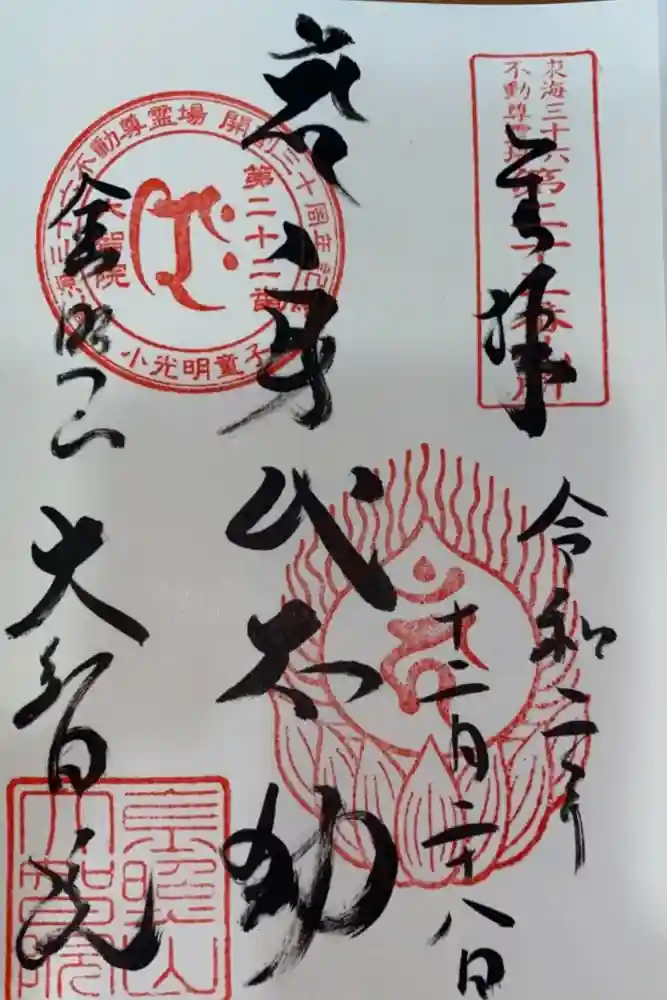 東海三十六
不動尊霊場
第二十二番札所
奉拝
令和二年
十二月二十八日
身代不動
東海三十六不動尊霊場 開創三十周年記念
第二十二番
大智院
小光明童子
金照山 大智院
金照山
大智院